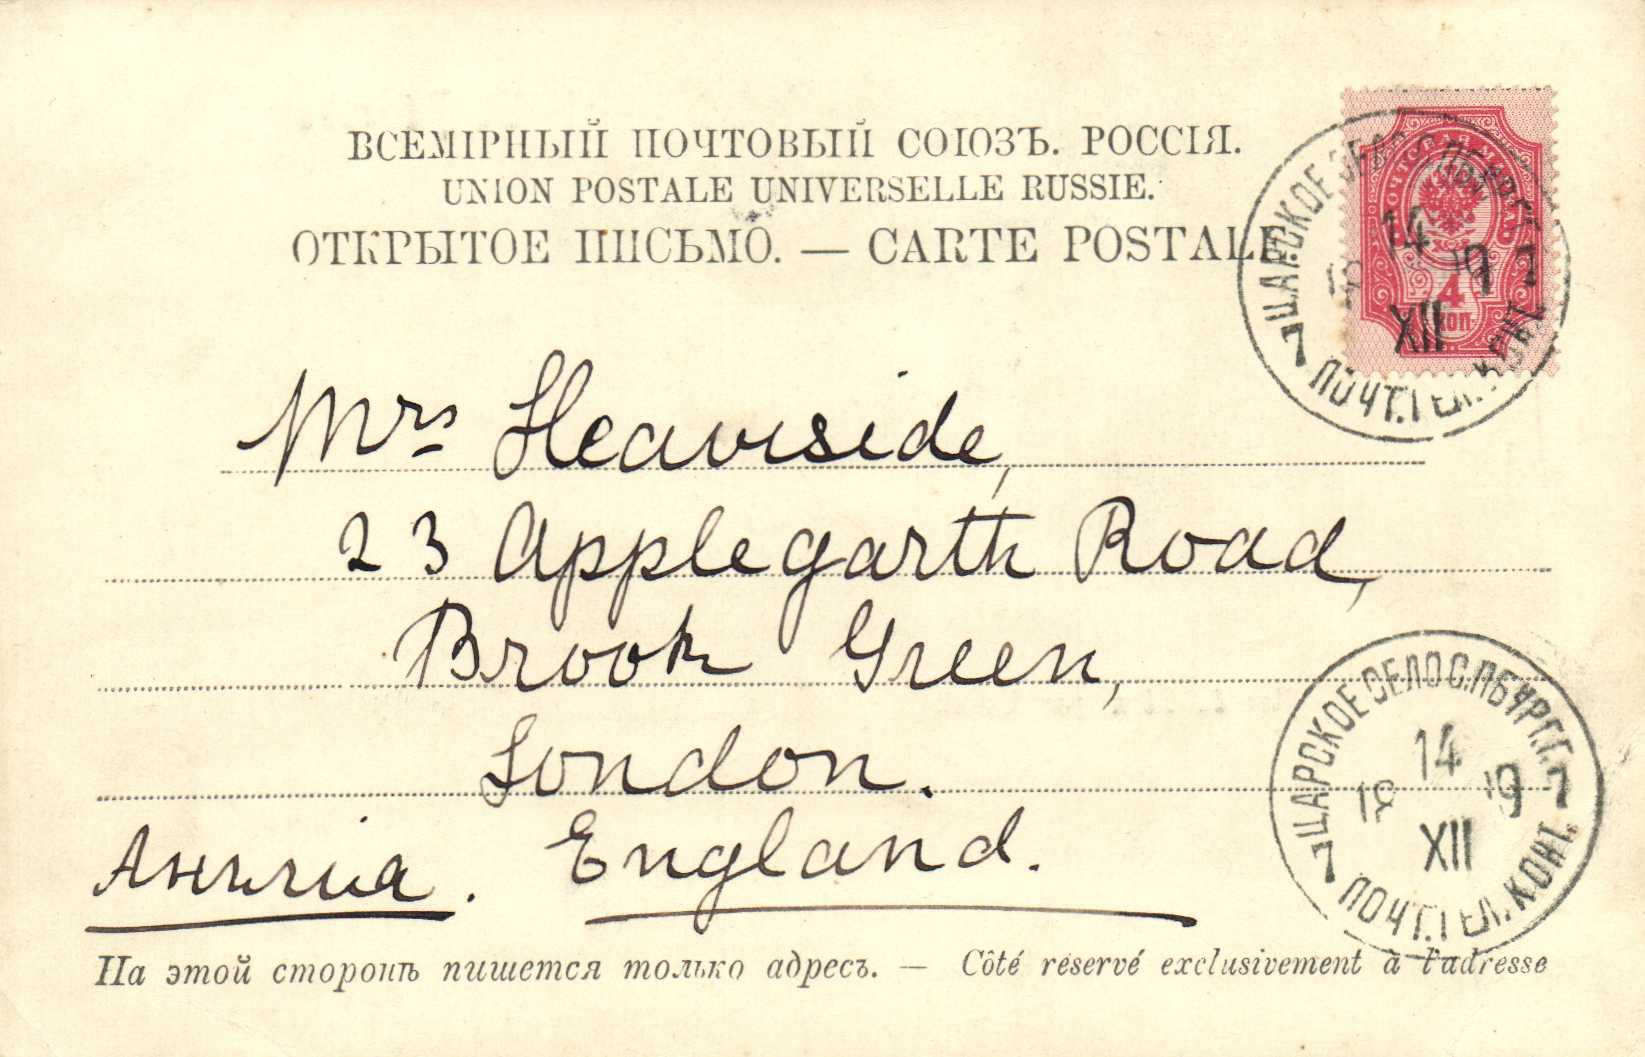 ВСЕМІРНЫЙ ПОЧТОВЫЙ СОЮЗЪ. РОССІЯ.
UNION POSTALE UNIVERSELLE RUSSIE.
ОТКРЫТОЕ ПИСЬМО. — CARTE POSTALE
ПОЧТОВАЯ МАРКА
4
КОП.
ЦАРСКОЕ СЕЛО
14
XII
7
7
ПОЧТ. ТЕЛ. КОНТ.
Mrs Heaviside,
23 Applegarth Road,
Brook Green,
London.
Англія. England.
ЦАРСКОЕ СЕЛО С.ПБУРГ.Г.
14
19
XII
7
7
ПОЧТ. ТЕЛ. КОНТ.
На этой сторонѣ пишется только адресъ. — Côté réservé exclusivement à l'adresse